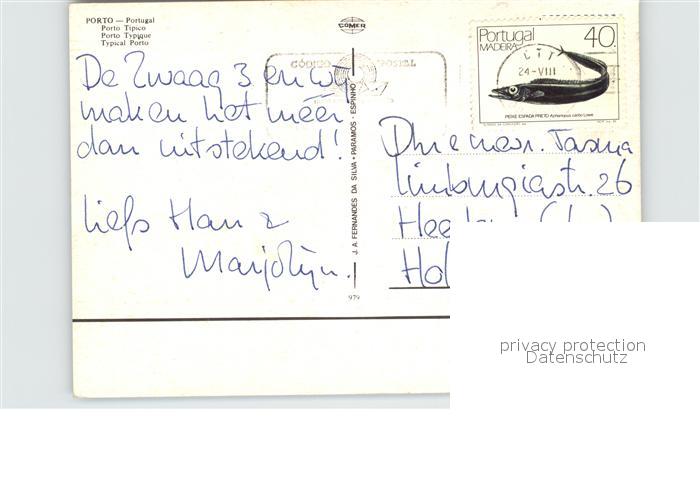 PORTO — Portugal
Porto Tipico
Porto Typique
Typical Porto
COMER
De Zwaag 3 en wij
maken het méér
dan uitstekend!
Liefs Han &
Marjolijn.
J. A. FERNANDES DA SILVA • PARAMOS - ESPINHO
979
CÓDIGO POSTAL
Portugal 40.
MADEIRA
CTT
24-VIII
PEIXE ESPADA PRETO Aphanopus carbo Lowe
Dhr en mevr. Tasma
26
Hee
Hol
privacy protection
Datenschutz